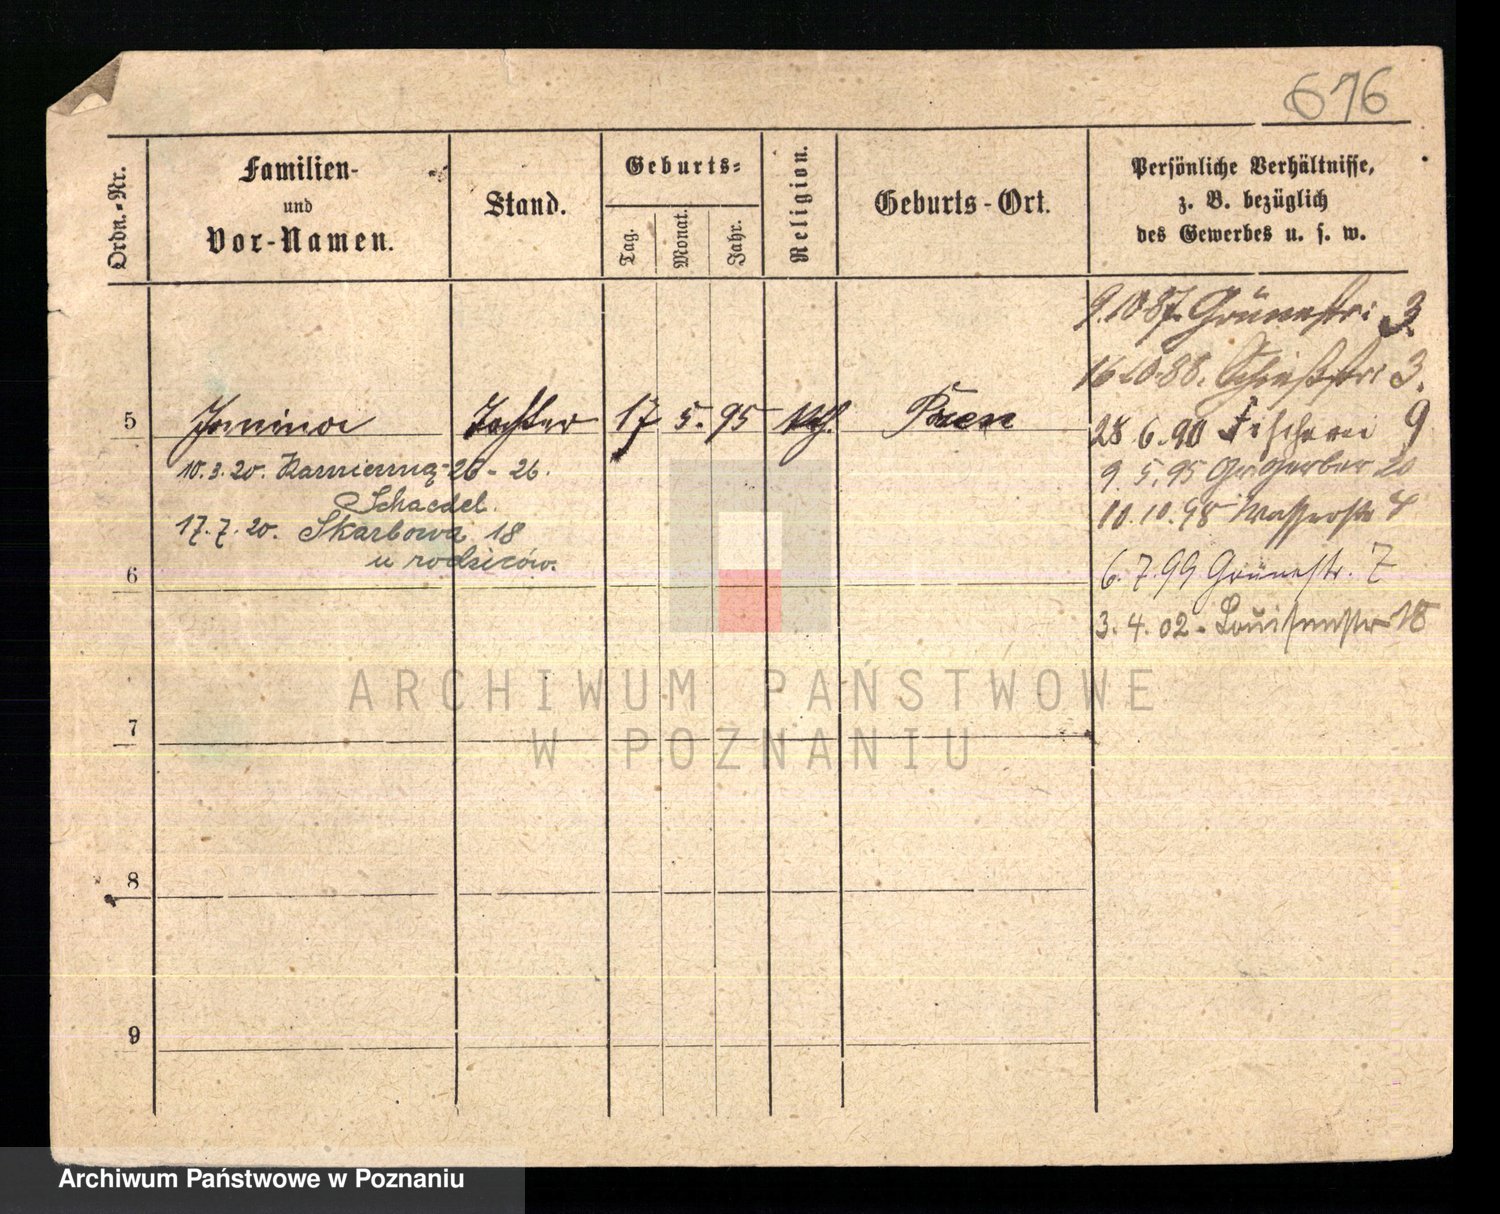 676
Ordn.-Nr.
Familien-
und
Vor-Namen.
Stand.
Geburts-
Tag.
Monat.
Jahr.
Religion.
Geburts-Ort.
Persönliche Verhältnisse,
z. B. bezüglich
des Gewerbes u. s. w.
9.10.87. Grünestr. 3.
16.10.88. Schießstr. 3.
5 Janina Tochter 17 5. 95 kth. Posen
28.6.90 Fischerei 9
10.3.20. Kamienna 26-26.
Schaedel.
9.5.95 Gr. Gerber 20
17.7.20. Skarbowa 18
u rodziców.
10.10.98 Wasserstr 4
6
6.7.99 Grünestr. 7
3.4.02 - Louisenstr 18
7
8
9
ARCHIWUM PAŃSTWOWE
W POZNANIU
Archiwum Państwowe w Poznaniu